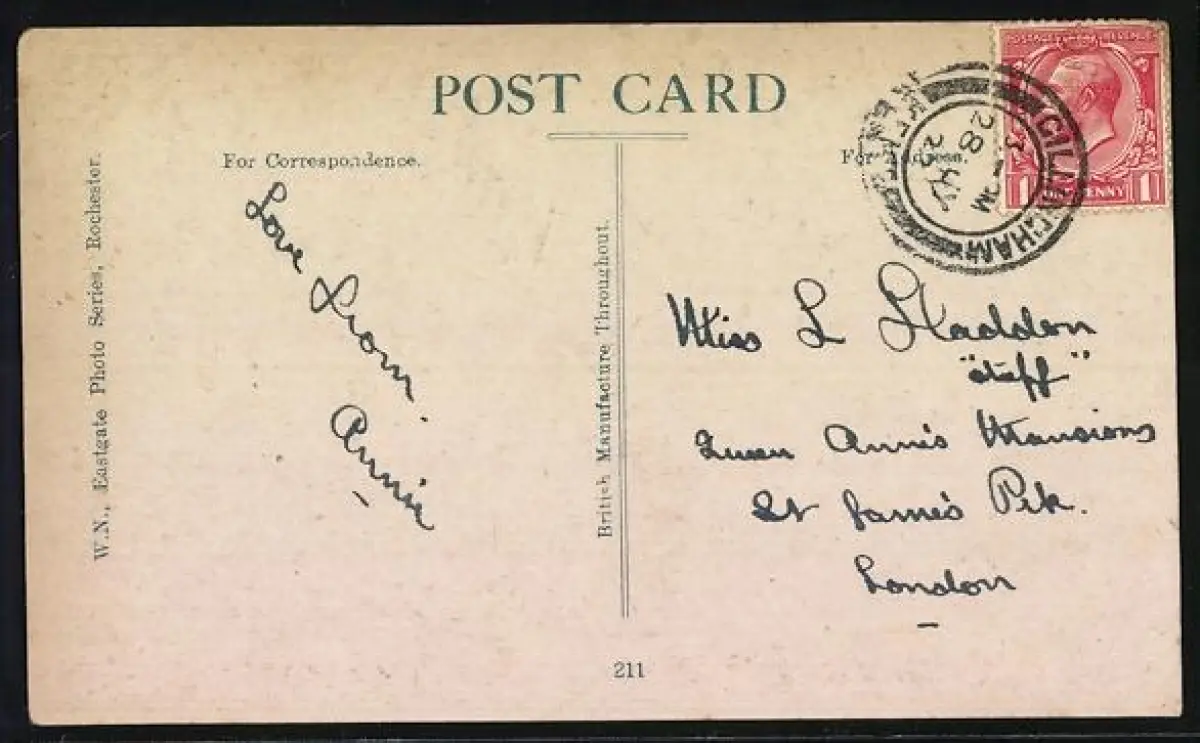 POST CARD
For Correspondence.
For Address.
Love from
Annie
W.N., Eastgate Photo Series, Rochester.
British Manufacture Throughout.
POSTAGE REVENUE
1 PENNY 1
GILLINGHAM
KENT
28
Miss L Haddon
"Staff"
Queen Anne's Mansions
St James's Pk.
London
211